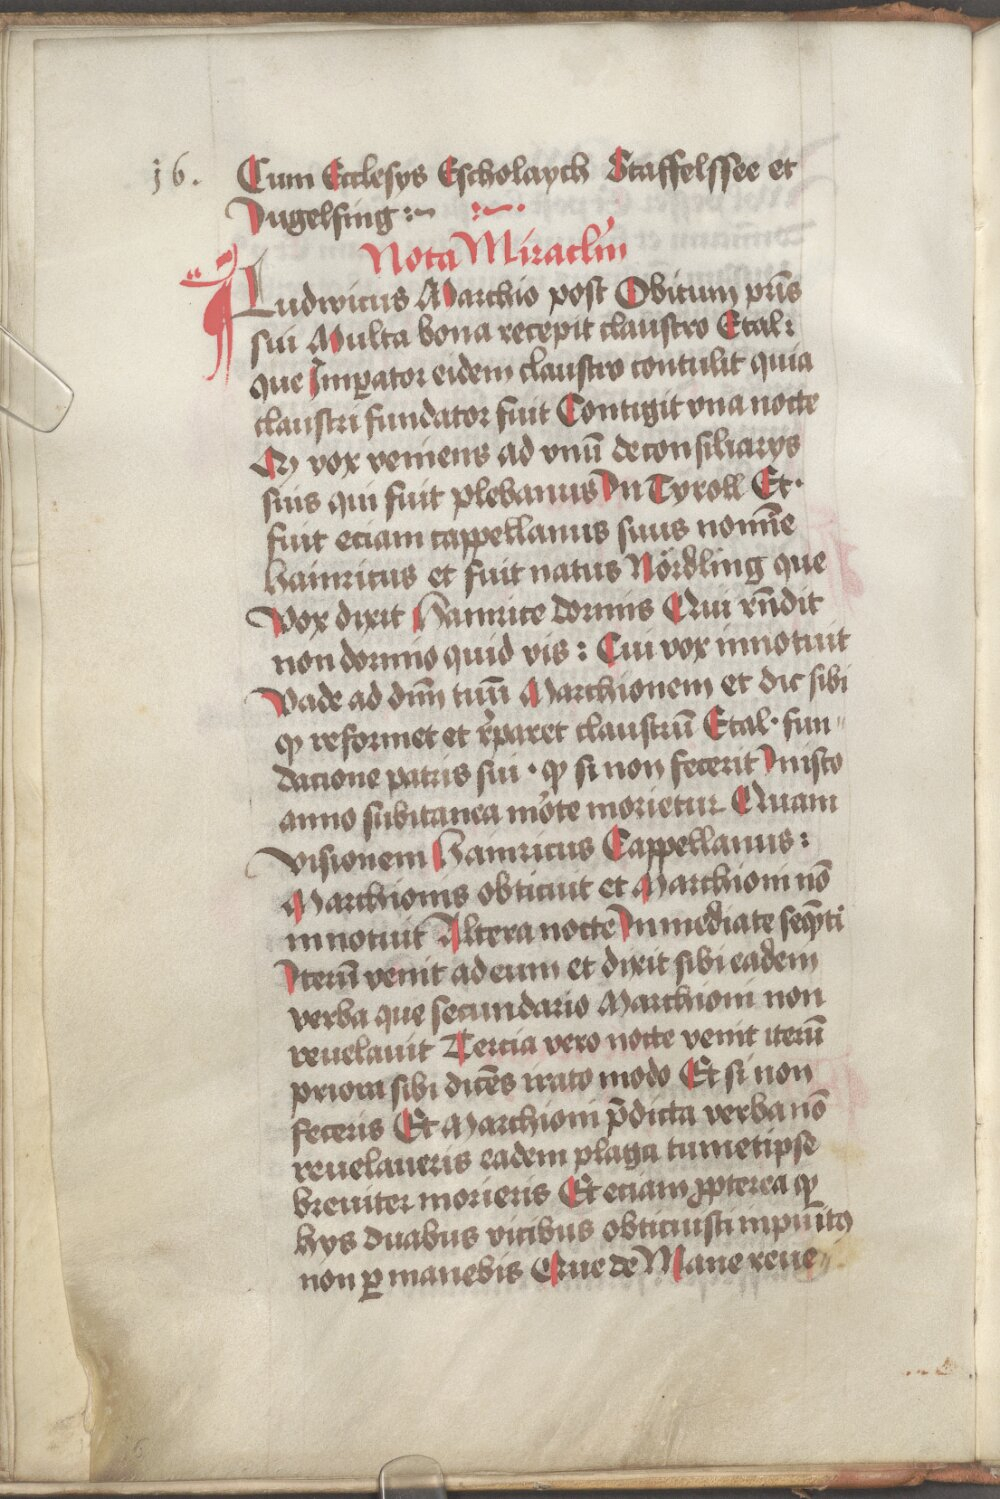 16. Cum Ecclesys Escholaych Staffelssee et
Jugelfing :~
Nota Miraclm̄
Ludwicus Marchio post Obitum pr̄is
sui Multa bona recepit claustro Etal:
que Imꝑator eidem claustro contulit quia
claustri fundator fuit Contigit vna nocte
vox veniens ad vnū de consiliarys
suis qui fuit plebanus In Tyroll Et
fuit eciam cappellanus suus nomīe
hainricus et fuit natus Nördling que
Vox dixit Hainrice dormis Qui rn̄dit
non dormio quid vis : Cui vox innotuit
Vade ad dn̄m tuū Marchionem et dic sibi
ꝙ reformet et rꝑaret claustrū Etal· fun„
dacione patris sui · ꝙ si non fecerit In isto
anno subitanea mo͛te morietur Quam
visionem Hainricus Cappellanus :
Marchionis obticuit et Marchioni nō
innotuit Altera nocte Inmediate seq̄nti
Iterū venit ad eum et dixit sibi eadem
verba que secundario Marchioni non
reuelauit Tercia vero nocte venit iterū
priora sibi dicēs irato modo Et si non
feceris Et Marchioni p̄dicta verba nō
reuelaueris eadem plaga tumetipse
breuiter morieris Et eciam ꝓpterea ꝙ
hys duabus vicibus obticuisti inpunitꝰ
non ꝑmanebis Que de Mane reue„